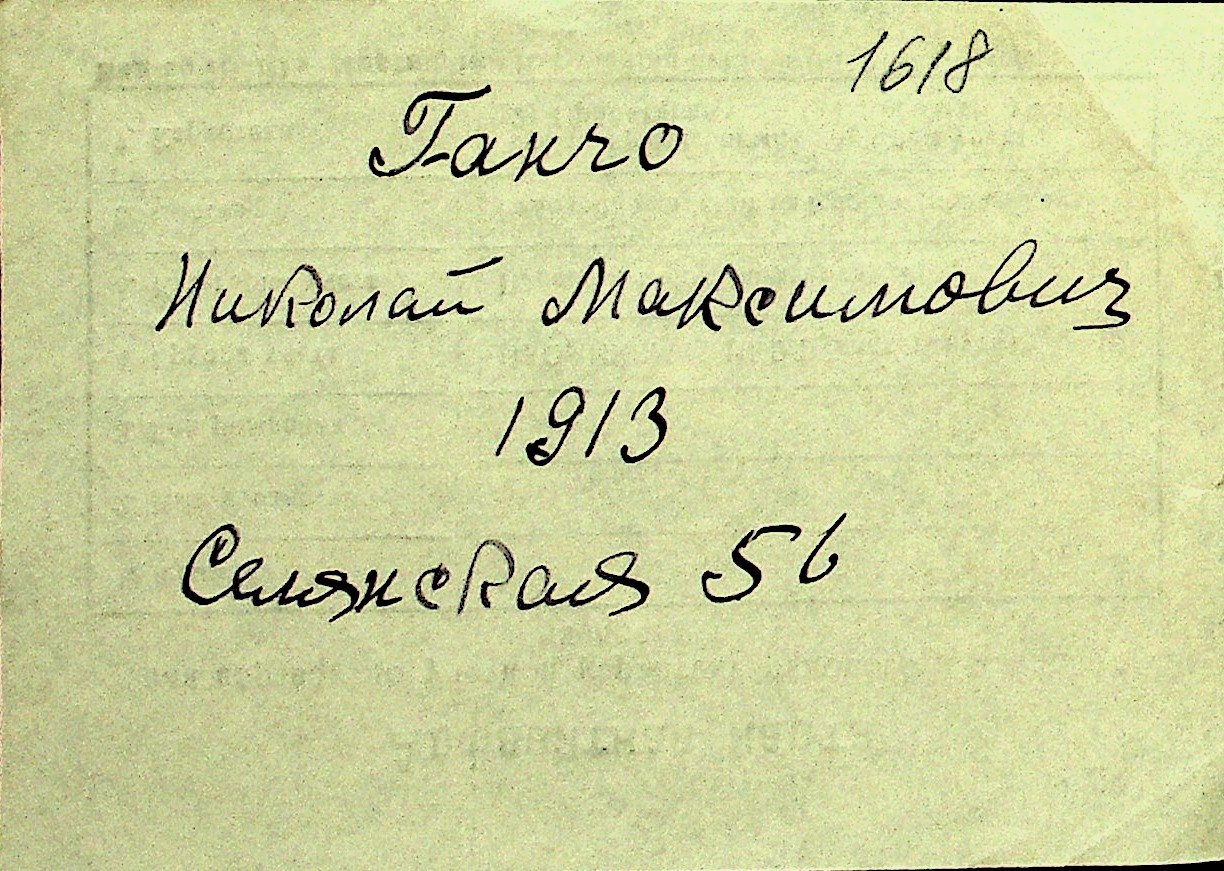 1618
Ганчо
Николай Максимович
1913
Селянская 56